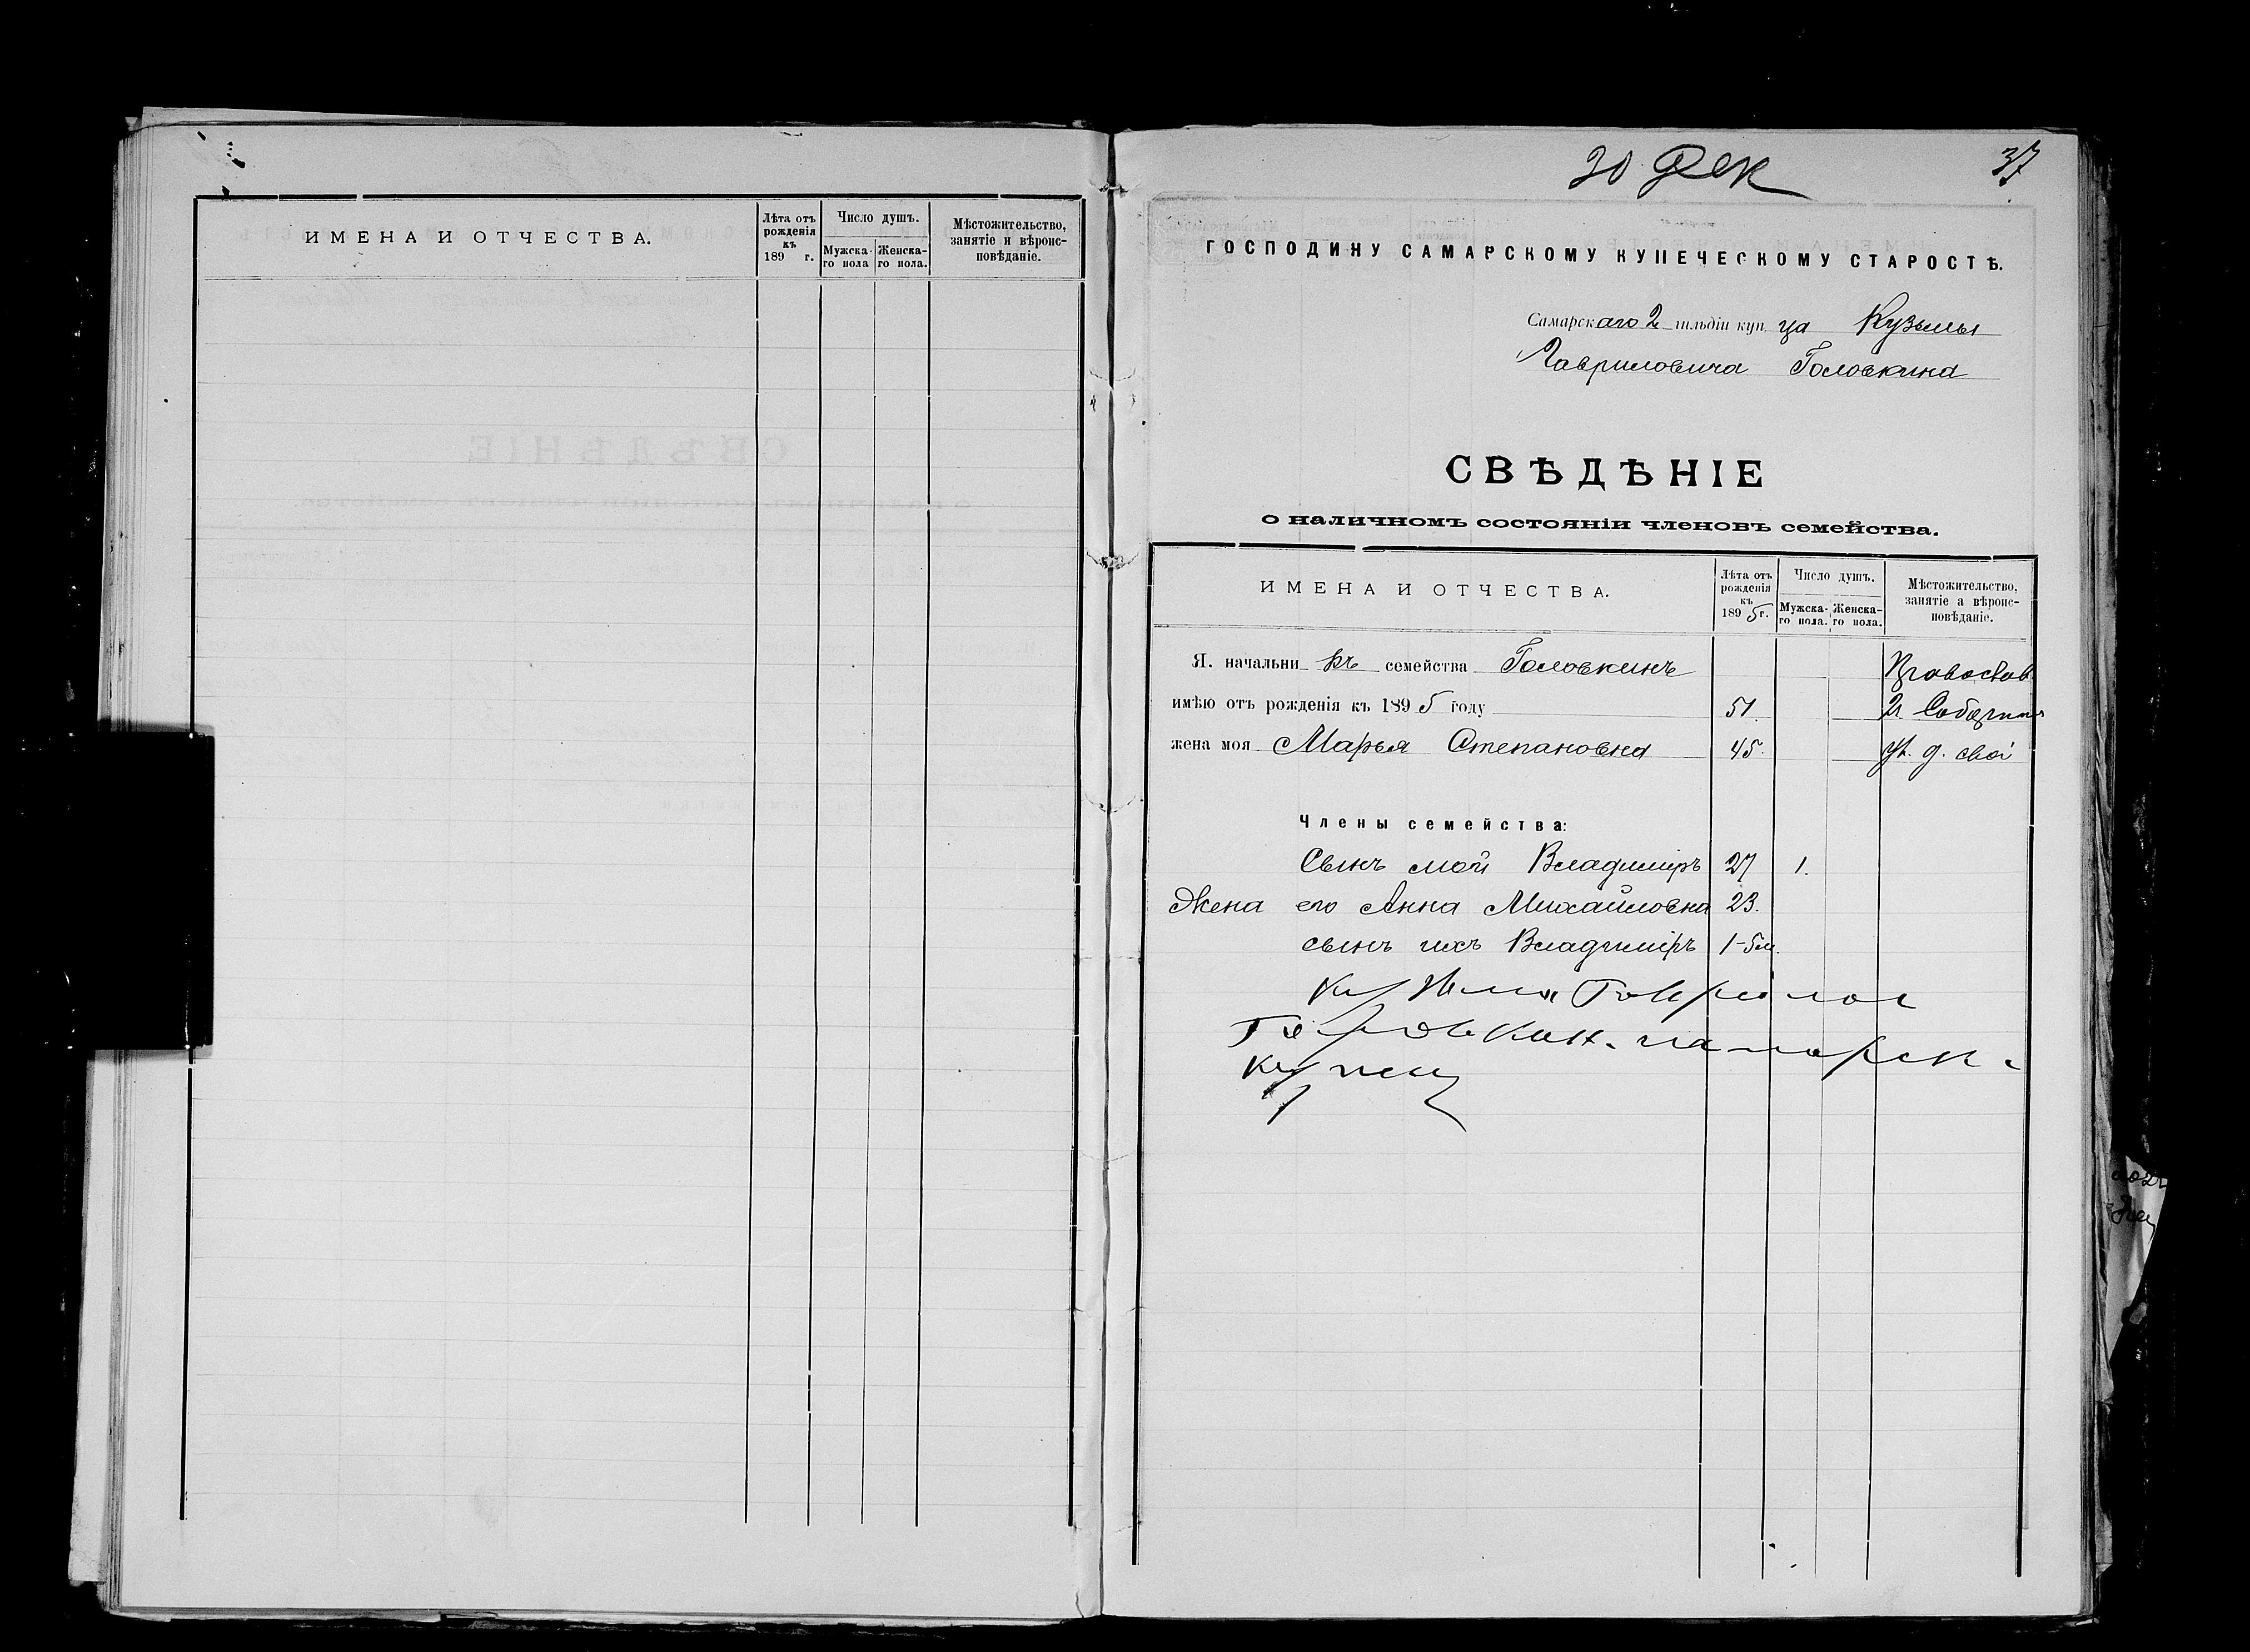 ИМЕНА И ОТЧЕСТВА.
Лѣта отъ рожденія къ 189 г.
Число душъ.
Мужска-го пола
Женска-го пола.
Мѣстожительство, занятіе и вѣроис-повѣданіе.
30 Дек
37
ГОСПОДИНУ САМАРСКОМУ КУПЕЧЕСКОМУ СТАРОСТѢ.
Самарскаго 2 гильдіи куп. ца Кузьмы
Гавриловича Головкина
СВѢДѢНІЕ
о наличномъ состояніи членовъ семейства.
ИМЕНА И ОТЧЕСТВА.
Лѣта отъ рожденія къ 1895 г.
Число душъ.
Мужска-го пола.
Женска-го пола.
Мѣстожительство, занятіе а вѣроис-повѣданіе.
Я. начальни къ семейства Головкинъ Православ
имѣю отъ рожденія къ 1895 году 51. 2
жена моя Марья Степановна 45. д. свой
Члены семейства:
Сынъ мой Владиміръ 27 1.
Жена его Анна Михайловна 23.
сынъ ихъ Владиміръ 1-5м.
Кузма Гаврилов
Головкин самарск
купец